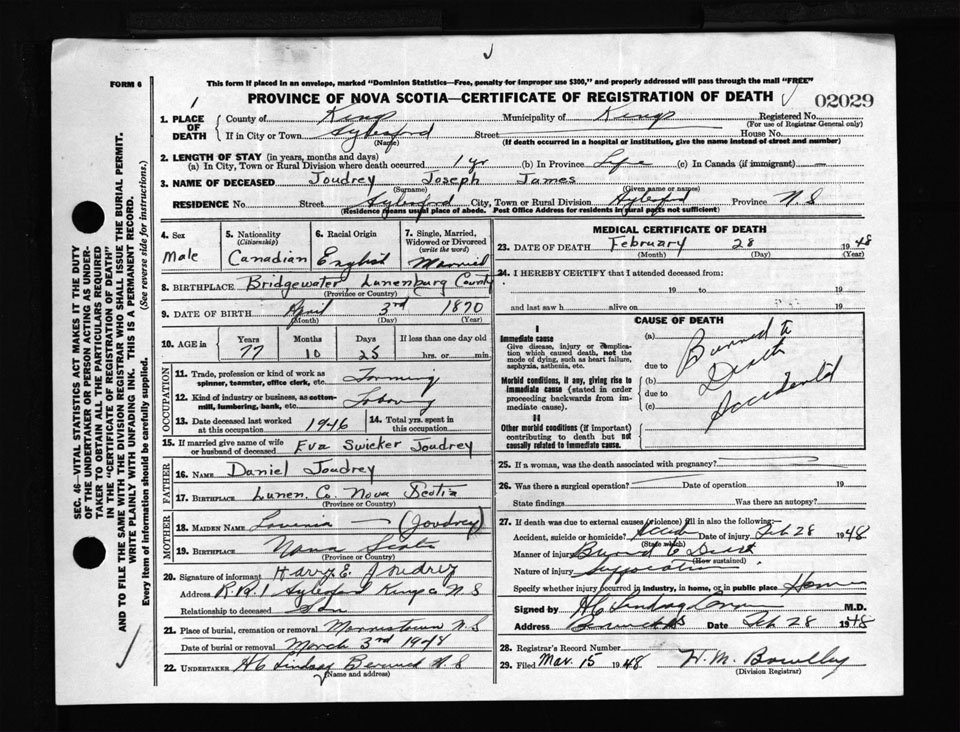 This form if placed in an envelope, marked "Dominion Statistics—Free, penalty for improper use $300," and properly addressed will pass through the mail "FREE"
FORM 6
PROVINCE OF NOVA SCOTIA—CERTIFICATE OF REGISTRATION OF DEATH
02029
SEC. 46—VITAL STATISTICS ACT MAKES IT THE DUTY
OF THE UNDERTAKER OR PERSON ACTING AS UNDER-
TAKER TO OBTAIN ALL THE PARTICULARS REQUIRED
IN THE "CERTIFICATE OF REGISTRATION OF DEATH"
AND TO FILE THE SAME WITH THE DIVISION REGISTRAR WHO SHALL ISSUE THE BURIAL PERMIT.
WRITE PLAINLY WITH UNFADING INK. THIS IS A PERMANENT RECORD.
Every item of information should be carefully supplied. (See reverse side for instructions.)
1. PLACE OF DEATH County of Kings Municipality of Kings Registered No.
(For use of Registrar General only)
If in City or Town Aylesford Street House No.
(Name) (If death occurred in a hospital or institution, give the name instead of street and number)
2. LENGTH OF STAY (in years, months and days)
(a) In City, Town or Rural Division where death occurred 1 yr (b) In Province Life (c) In Canada (if immigrant) —
3. NAME OF DECEASED Joudrey Joseph James
(Surname) (Given name or names)
RESIDENCE No. Street Aylesford City, Town or Rural Division Aylesford Province N.S
(Residence means usual place of abode. Post Office Address for residents in rural parts not sufficient)
4. Sex Male
5. Nationality (Citizenship) Canadian
6. Racial Origin English
7. Single, Married, Widowed or Divorced (write the word) Married
8. BIRTHPLACE Bridgewater Lunenburg County
(Province or Country)
9. DATE OF BIRTH April 3rd 1870
(Month) (Day) (Year)
10. AGE in Years 77 Months 10 Days 25 If less than one day old hrs. or min.
OCCUPATION
11. Trade, profession or kind of work as spinner, teamster, office clerk, etc. Farming
12. Kind of industry or business, as cotton-mill, lumbering, bank, etc.
13. Date deceased last worked at this occupation 1946
14. Total yrs. spent in this occupation
15. If married give name of wife or husband of deceased Eva Swicker Joudrey
FATHER
16. NAME Daniel Joudrey
17. BIRTHPLACE Lunen. Co. Nova Scotia
MOTHER
18. MAIDEN NAME Lavinia — (Joudrey)
19. BIRTHPLACE Nova Scotia
(Province or Country)
20. Signature of informant Harry E. Joudrey
Address R.R.1 Aylesford Kings Co N.S
Relationship to deceased Son
21. Place of burial, cremation or removal Morristown N.S
Date of burial or removal March 3rd 1948
22. UNDERTAKER HC Lindsay Berwick N S
(Name and address)
MEDICAL CERTIFICATE OF DEATH
23. DATE OF DEATH February 28 1948
(Month) (Day) (Year)
24. I HEREBY CERTIFY that I attended deceased from:
19 to 19
and last saw h alive on 19
CAUSE OF DEATH
I
Immediate cause
Give disease, injury or complication which caused death, not the mode of dying, such as heart failure, asphyxia, asthenia, etc.
(a) Burned to
due to Death
Morbid conditions, if any, giving rise to immediate cause (stated in order proceeding backwards from immediate cause).
(b)
due to Accidental
(c)
II
Other morbid conditions (if important) contributing to death but not causally related to immediate cause.
25. If a woman, was the death associated with pregnancy?
26. Was there a surgical operation? Date of operation 19
State findings Was there an autopsy?
27. If death was due to external causes (violence) fill in also the following:—
Accident, suicide or homicide? Accid Date of injury Feb 28 1948
(State which)
Manner of injury Burned to Death
(How sustained)
Nature of injury Suffocation
Specify whether injury occurred in industry, in home, or in public place Home
Signed by HC Lindsay M.D.
Address Berwick NS Date Feb 28 1948
28. Registrar's Record Number
29. Filed Mar. 15 1948 W.M.
(Division Registrar)